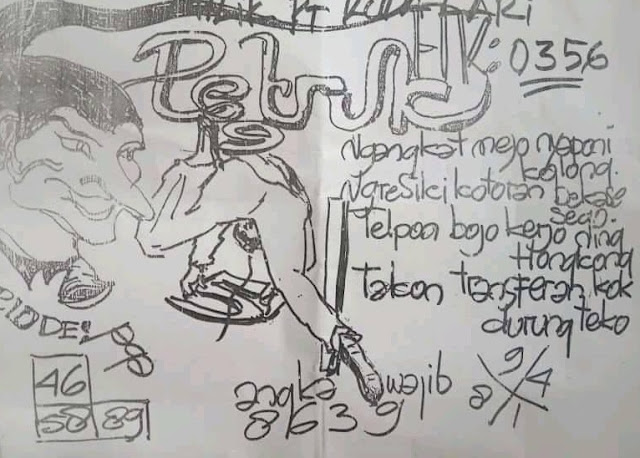 PetruK HK: 0356
Ngangkat mejo nyapani
kolong.
NgreSiki kotoran bekase
sego.
Telpon bojo kerjo ning
Hongkong
Takon transferan kok
durung teko
46
58 89
angka wajib
8639
9
8 4
1